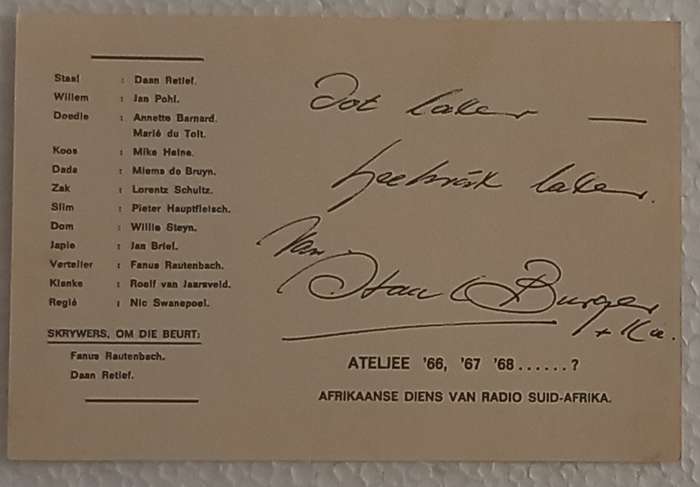 Staal : Daan Retief.
Willem : Jan Pohl.
Doedie : Annette Barnard.
Marié du Toit.
Koos : Mike Heine.
Dada : Miems de Bruyn.
Zak : Lorentz Schultz.
Slim : Pieter Hauptfleisch.
Dom : Willie Steyn.
Japie : Jan Briel.
Verteller : Fanus Rautenbach.
Klanke : Roelf van Jaarsveld.
Regié : Nic Swanepoel.
SKRYWERS, OM DIE BEURT:
Fanus Rautenbach.
Daan Retief.
Tot later —
later.
Van
Burger
+ Kie.
ATELJEE '66, '67 '68......?
AFRIKAANSE DIENS VAN RADIO SUID-AFRIKA.